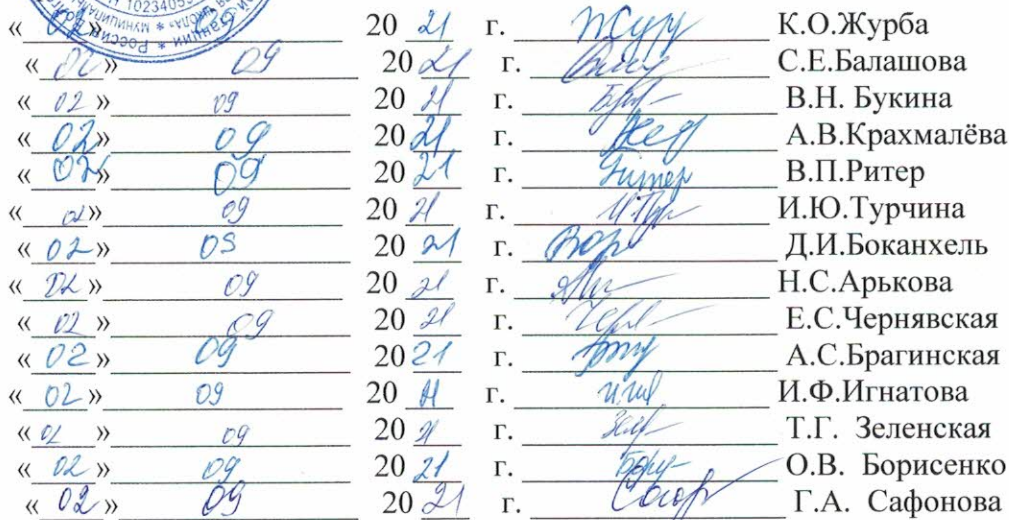 « 02 » 09 20 21 г. К.О.Журба
« 02 » 09 20 21 г. С.Е.Балашова
« 02 » 09 20 21 г. В.Н. Букина
« 02 » 09 20 21 г. А.В.Крахмалёва
« 02 » 09 20 21 г. Ритер В.П.Ритер
« 02 » 09 20 21 г. И.Ю.Турчина
« 02 » 09 20 21 г. Д.И.Боканхель
« 02 » 09 20 21 г. Н.С.Арькова
« 02 » 09 20 21 г. Е.С.Чернявская
« 02 » 09 20 21 г. А.С.Брагинская
« 02 » 09 20 21 г. И.Ф.Игнатова
« 02 » 09 20 21 г. Т.Г. Зеленская
« 02 » 09 20 21 г. О.В. Борисенко
« 02 » 09 20 21 г. Г.А. Сафонова